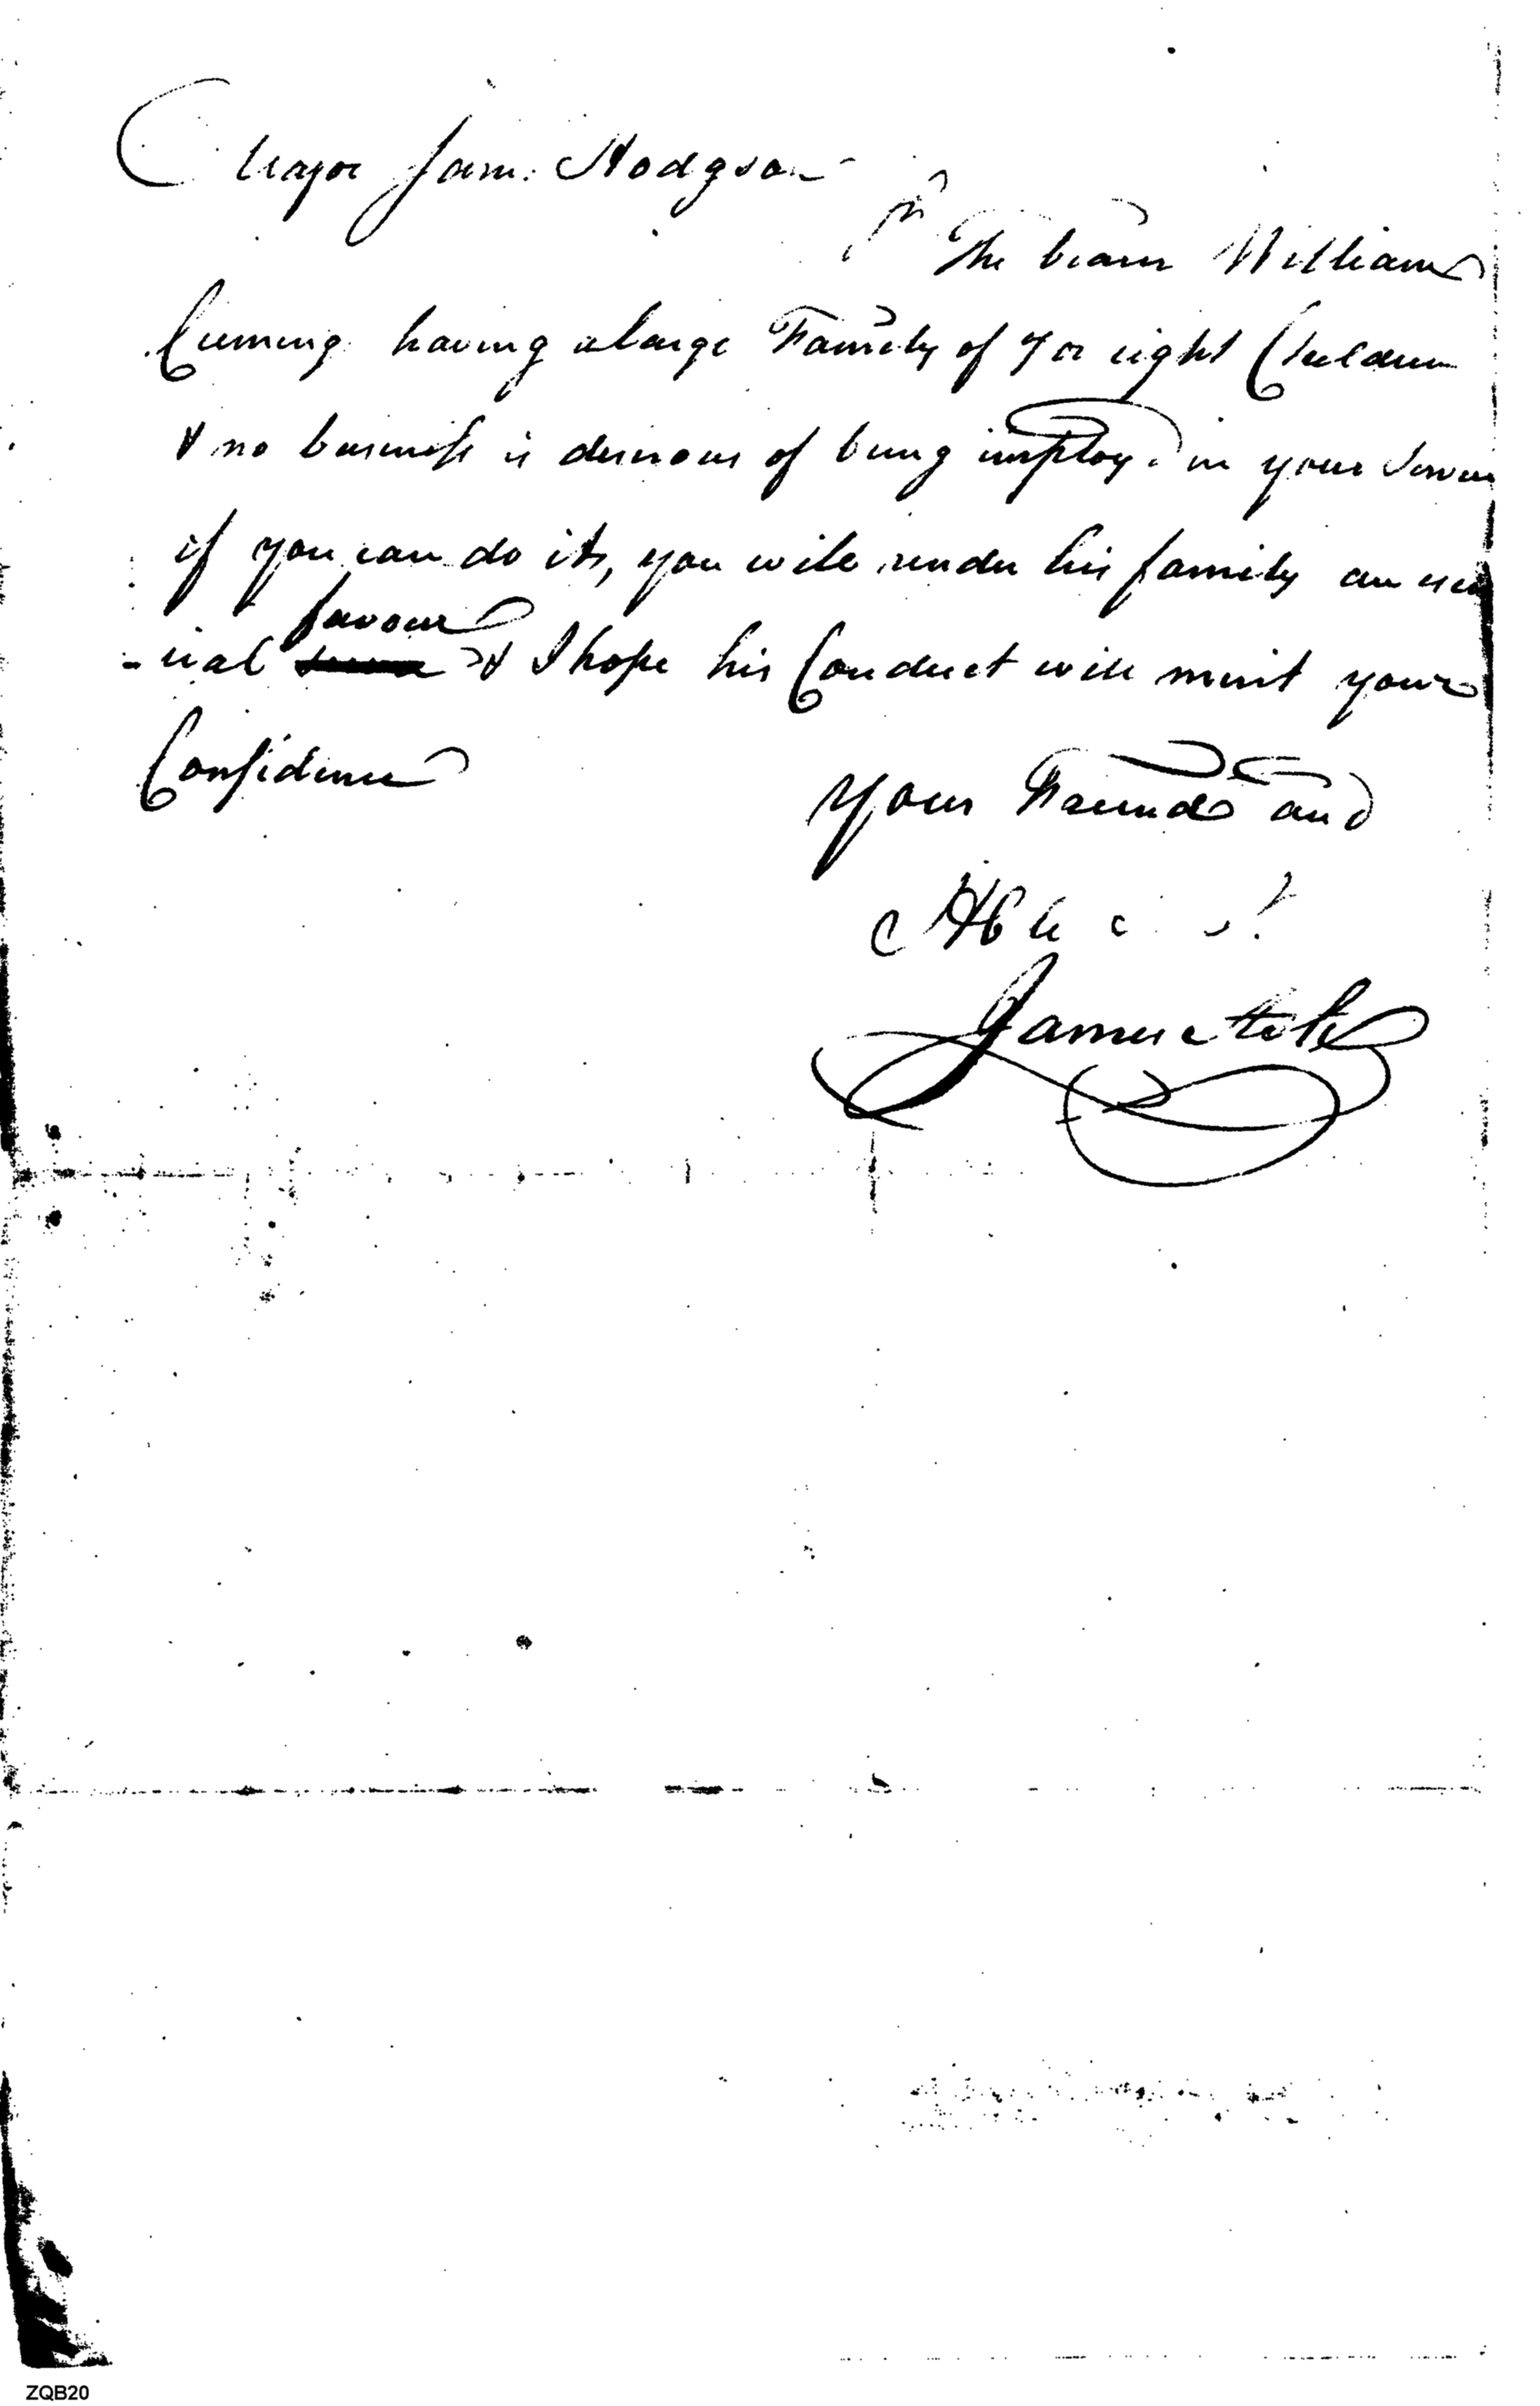 Major Sam. Hodgson
Sir The bearer William
Cuming having a large Family of 7 or eight Children
& no business is desirous of being imploy.d in your Service
if you can do it, you will render his family an essen
-tial favour & I hope his Conduct will merit your
Confidence
Your Friend and
Hble
James
ZQB20